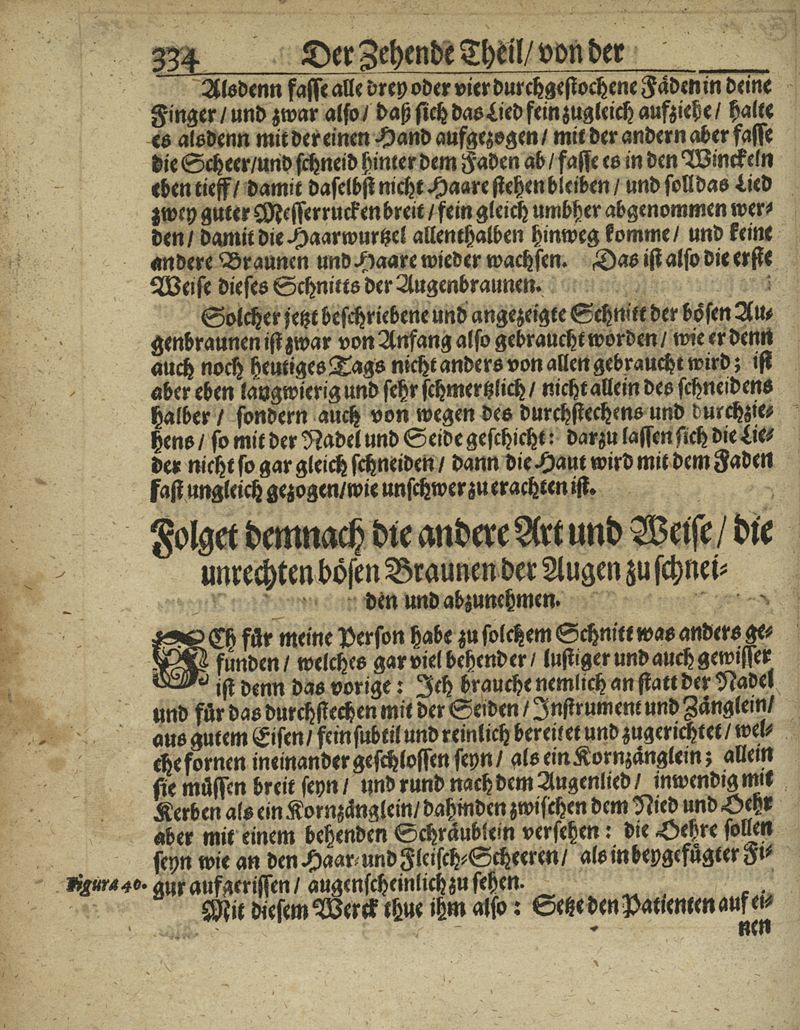 334 Der Zehende Theil / von der
Alsdenn fasse alle drey oder vier durchgestochene Fäden in deine
Finger / und zwar also / daß sich das Lied fein zugleich aufziehe / halte
es alsdenn mit der einen Hand aufgezogen / mit der andern aber fasse
die Scheer / und schneid hinter dem Faden ab / fasse es in den Winckeln
eben tieff / damit daselbst nicht Haare stehen bleiben / und soll das Lied
zwey guter Messerrucken breit / fein gleich umbher abgenommen wer-
den / damit die Haarwurtzel allenthalben hinweg komme / und keine
andere Braunen und Haare wieder wachsen. Das ist also die erste
Weise dieses Schnitts der Augenbraunen.
Solcher jetzt beschriebene und angezeigte Schnitt der bösen Au-
genbraunen ist zwar von Anfang also gebraucht worden / wie er denn
auch noch heutiges Tags nicht anders von allen gebraucht wird; ist
aber eben langwierig und sehr schmertzlich / nicht allein des schneidens
halber / sondern auch von wegen des durchstechens und durchzie-
hens / so mit der Nadel und Seide geschicht: darzu lassen sich die Lie-
der nicht so gar gleich schneiden / dann die Haut wird mit dem Faden
fast ungleich gezogen / wie unschwer zu erachten ist.
Folget demnach die andere Art und Weise / die
unrechten bösen Braunen der Augen zu schnei-
den und abzunehmen.
ICh für meine Person habe zu solchem Schnitt was anders ge-
funden / welches gar viel behender / lustiger und auch gewisser
ist denn das vorige: Ich brauche nemlich an statt der Nadel
und für das durchstechen mit der Seiden / Instrument und Zänglein /
aus gutem Eisen / fein subtil und reinlich bereitet und zugerichtet / wel-
che fornen ineinander geschlossen seyn / als ein Kornzänglein; allein
sie müssen breit seyn / und rund nach dem Augenlied / inwendig mit
Kerben als ein Kornzänglein / dahinden zwischen dem Nied und Oehr
aber mit einem behenden Schräublein versehen: die Oehre sollen
seyn wie an den Haar- und Fleisch-Scheeren / als in beygefügter Fi-
Figura 40. gur aufgerissen / augenscheinlich zu sehen.
Mit diesem Werck thue ihm also: Setze den Patienten auf ei-
nen